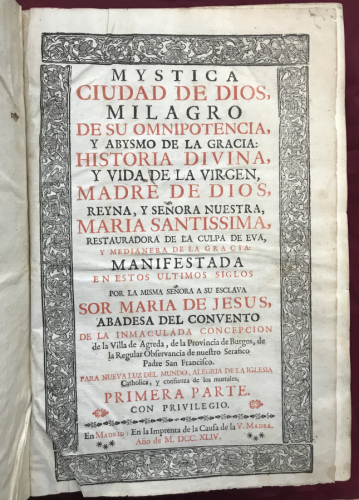 MYSTICA
CIUDAD DE DIOS,
MILAGRO
DE SU OMNIPOTENCIA,
Y ABYSMO DE LA GRACIA:
HISTORIA DIVINA,
Y VIDA DE LA VIRGEN,
MADRE DE DIOS,
REYNA, Y SEÑORA NUESTRA,
MARIA SANTISSIMA,
RESTAURADORA DE LA CULPA DE EVA,
Y MEDIANERA DE LA GRACIA:
MANIFESTADA
EN ESTOS ULTIMOS SIGLOS
POR LA MISMA SEÑORA A SU ESCLAVA
SOR MARIA DE JESUS,
ABADESA DEL CONVENTO
DE LA INMACULADA CONCEPCION
de la Villa de Agreda, de la Provincia de Burgos, de
la Regular Observancia de nuestro Serafico
Padre San Francisco.
PARA NUEVA LUZ DEL MUNDO, ALEGRIA DE LA IGLESIA
Catholica, y confianza de los mortales.
PRIMERA PARTE.
CON PRIVILEGIO.
En MADRID: En la Imprenta de la Causa de la V. MADRE.
Año de M. DCC. XLIV.